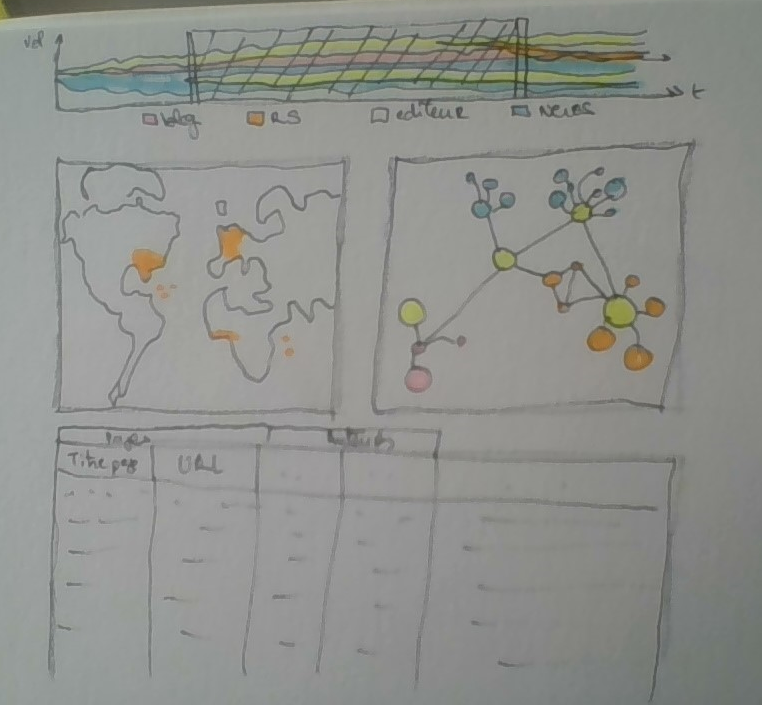 vol
t
blog RS editeur News
Pages
Titre page URL